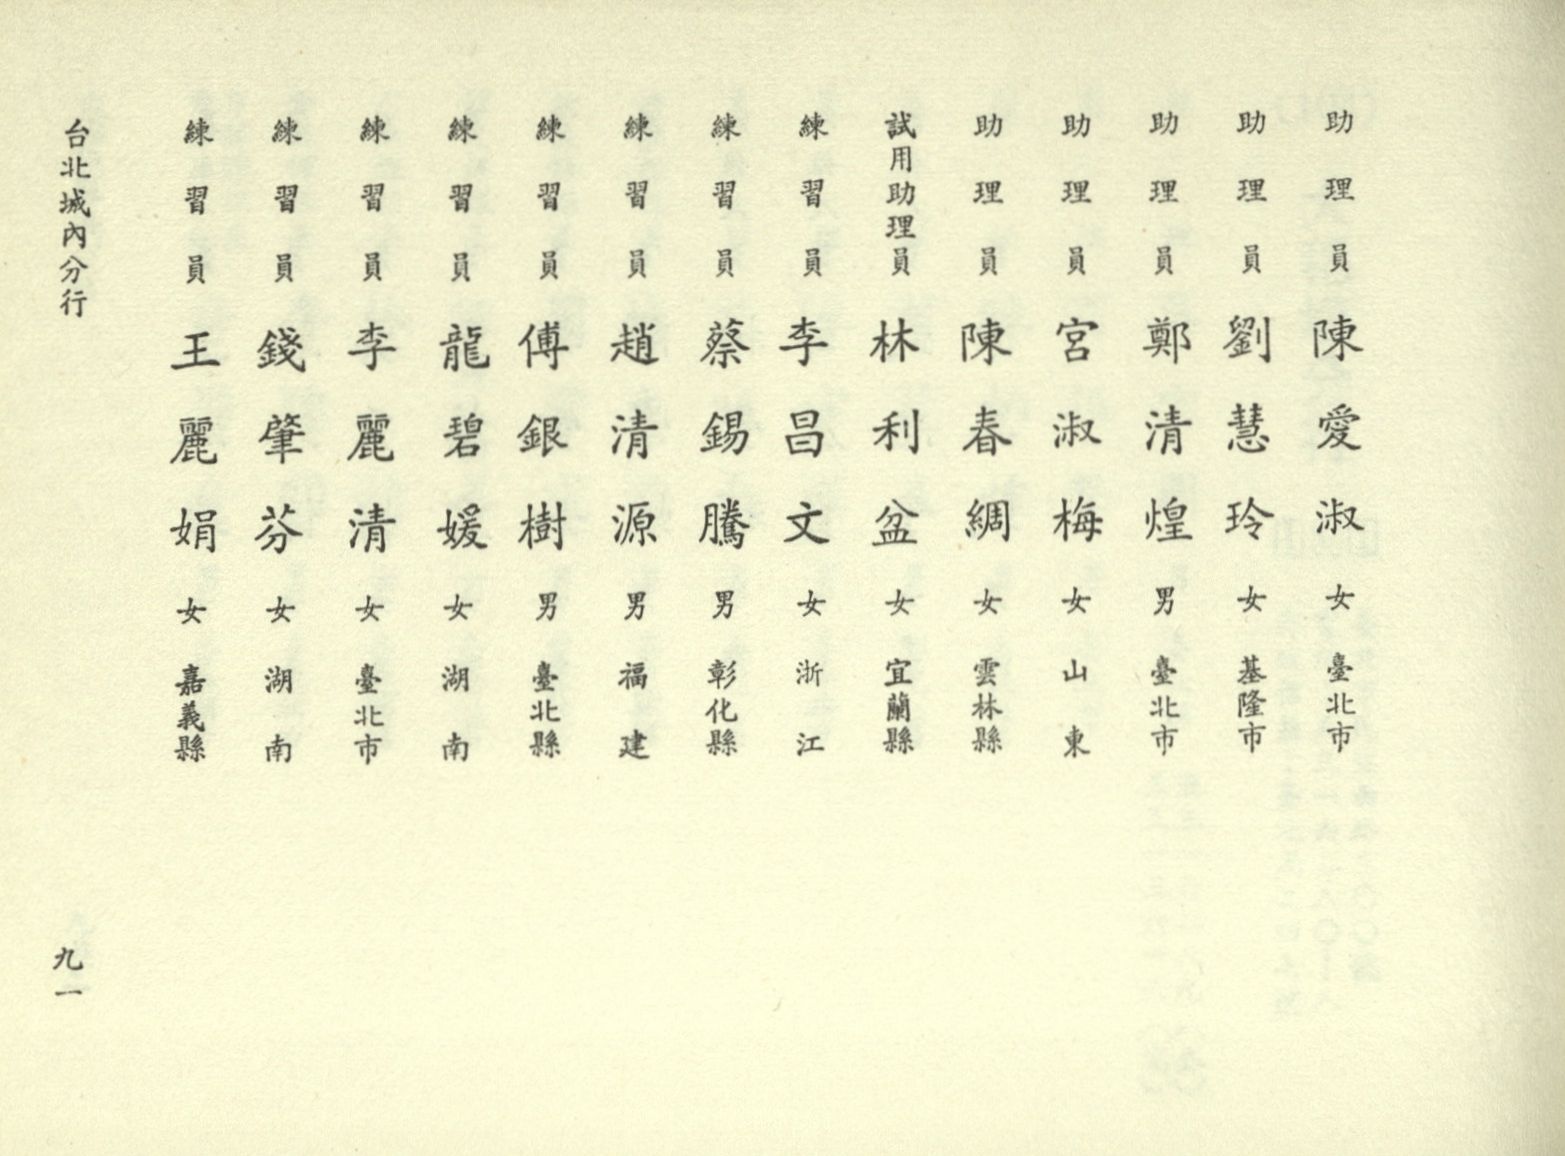 助理員 陳愛淑 女 臺北市
助理員 劉慧玲 女 基隆市
助理員 鄭清煌 男 臺北市
助理員 宮淑梅 女 山東
助理員 陳春綢 女 雲林縣
試用助理員 林利盆 女 宜蘭縣
練習員 李昌文 女 浙江
練習員 蔡錫騰 男 彰化縣
練習員 趙清源 男 福建
練習員 傅銀樹 男 臺北縣
練習員 龍碧媛 女 湖南
練習員 李麗清 女 臺北市
練習員 錢肇芬 女 湖南
練習員 王麗娟 女 嘉義縣
台北城內分行
九一